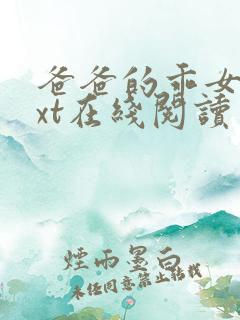 爸爸的乖女
xt在綫閱讀
煙雨墨白
未任同意禁止轉載